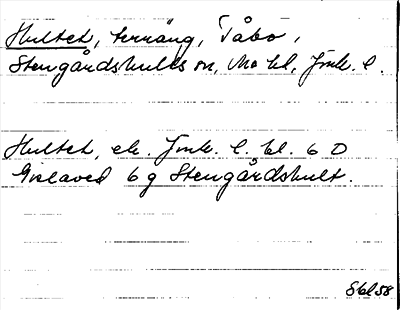 Hultet, terräng, Tåbo,
Stengårdshults sn, Mo hd, Jönk. l.
Hultet, ek. Jönk. l. bl. 6 D
Gislaved 6 g Stengårdshult.
58